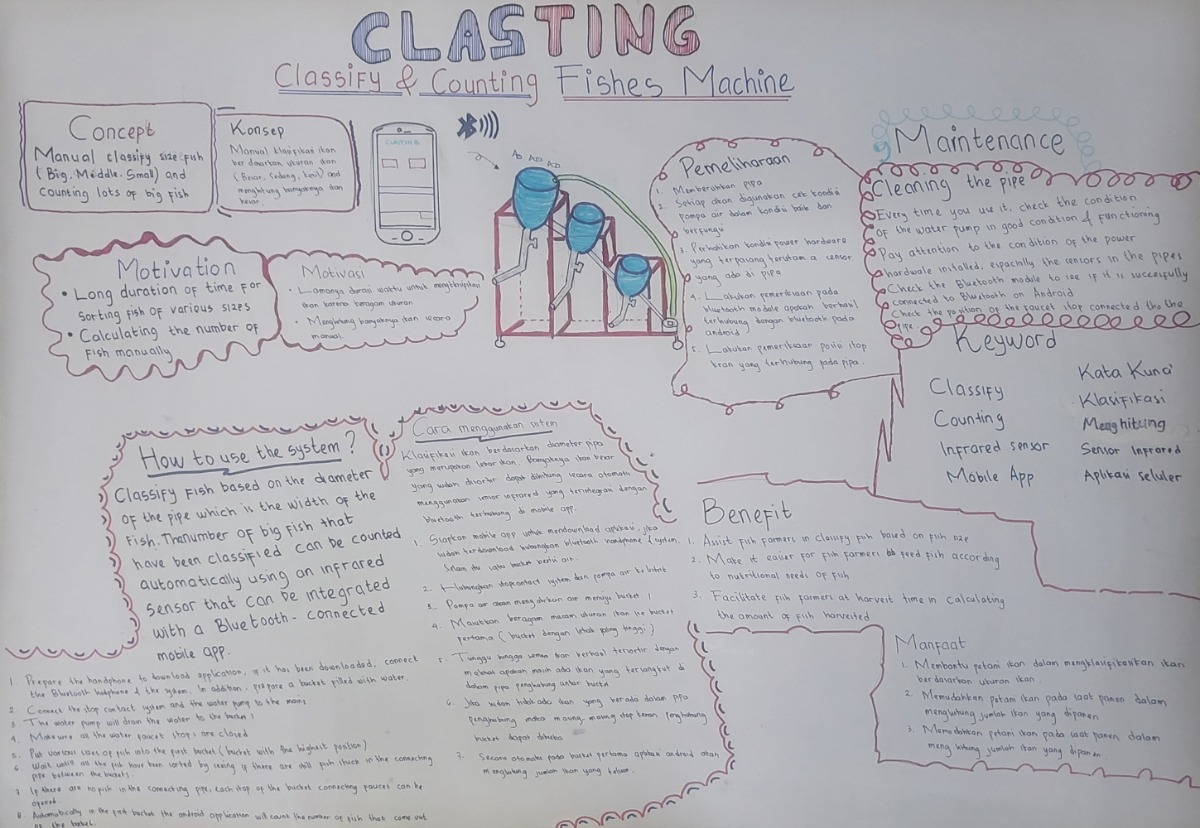 CLASTING
Classify & Counting Fishes Machine
Concept
Manual classify size fish
(Big. Middle. Small) and
counting lots of big fish
Konsep
Manual klasifikasi ikan
berdasarkan ukuran ikan
(Besar, Sedang, kecil) and
menghitung banyaknya ikan
besar.
CLASTING
Motivation
• Long duration of time for
sorting fish of various sizes
• Calculating the number of
fish manually
Motivasi
• Lamanya durasi waktu untuk
ikan karena beragam ukuran
• Menghitung banyaknya ikan secara
manual.
Pemeliharaan
1. Membersihkan pipa
2. Setiap akan digunakan cek kondisi
pompa air dalam kondisi baik dan
berfungsi
3. Perhatikan kondisi power hardware
yang terpasang terutama sensor
yang ada di pipa
4. Lakukan pemeriksaan pada
bluetooth module apakah berhasil
terhubung dengan bluetooth pada
android
5. Lakukan pemeriksaan posisi stop
kran yang terhubung pada pipa.
Maintenance
Cleaning the pipe
Every time you use it, check the condition
of the water pump in good condition & functioning
Pay attention to the condition of the power
hardware installed, especially the sensors in the pipes
Check the Bluetooth module to see if it is successfully
connected to Bluetooth on Android
Check the position of the faucet stop connected the
pipe.
Keyword
Classify
Counting
Infrared sensor
Mobile App
Kata Kunci
Klasifikasi
Menghitung
Sensor Infrared
Aplikasi seluler
How to use the system?
Classify fish based on the diameter
of the pipe which is the width of the
fish. The number of big fish that
have been classified can be counted
automatically using an infrared
sensor that can be integrated
with a Bluetooth-connected
mobile app.
1. Prepare the handphone to download application, if it has been downloaded, connect
the Bluetooth & the system. In addition, prepare a bucket filled with water.
2. Connect the stop contact system and the water pump to the mains
3. The water pump will drain the water to the bucket 1
4. Make sure all the water faucet stops are closed
5. Put various sizes of fish into the first bucket (bucket with the highest position)
6. Wait until all the fish have been sorted by seeing if there are still fish stuck in the connecting
pipe between the buckets.
7. If there are no fish in the connecting pipe, each stop of the bucket connecting faucet can be
opened.
8. Automatically in the first bucket the android application will count the number of fish that come out
of the bucket.
Cara menggunakan sistem
Klasifikasi ikan berdasarkan diameter pipa
yang merupakan lebar ikan. Banyaknya ikan besar
yang sudah disortir dapat dihitung secara otomatis
menggunakan sensor infrared yang terintegrasi dengan
bluetooth terhubung di mobile app.
1. Siapkan mobile app untuk mendownload aplikasi, jika
sudah terdownload hubungkan bluetooth handphone & system.
satu bucket berisi air.
2. Hubungkan stopcontact system dan pompa air ke listrik
3. Pompa air akan mengalirkan air menuju bucket 1
4. Masukkan beragam macam ukuran ikan ke bucket
pertama (bucket dengan letak paling tinggi)
5. Tunggu hingga semua ikan berhasil tersortir dengan
melihat apakah masih ada ikan yang tersangkut di
dalam pipa penghubung antar bucket
6. Jika sudah tidak ada ikan yang berada dalam pipa
penghubung maka masing-masing stop keran penghubung
bucket dapat dibuka
7. Secara otomatis pada bucket pertama aplikasi android akan
menghitung jumlah ikan yang keluar.
Benefit
1. Assist fish farmers in classify fish based on fish size
2. Make it easier for fish farmers to feed fish according
to nutritional needs of fish
3. Facilitate fish farmers at harvest time in calculating
the amount of fish harvested
Manfaat
1. Membantu petani ikan dalam mengklasifikasikan ikan
berdasarkan ukuran ikan.
2. Memudahkan petani ikan pada saat panen dalam
menghitung jumlah ikan yang dipanen
3. Memudahkan petani ikan pada saat panen dalam
menghitung jumlah ikan yang dipanen